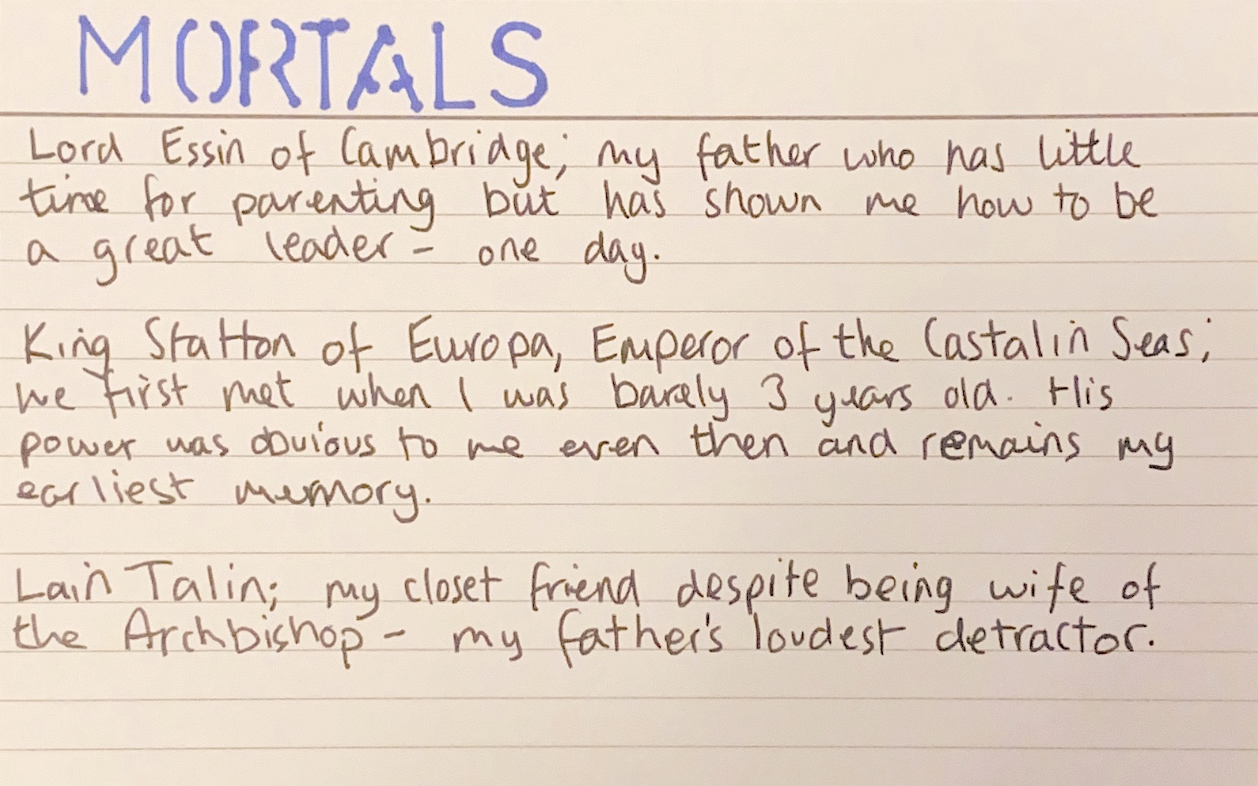 MORTALS
Lord Essin of Cambridge; my father who has little
time for parenting but has shown me how to be
a great leader - one day.
King Statton of Europa, Emperor of the Castalin Seas;
we first met when I was barely 3 years old. His
power was obvious to me even then and remains my
earliest memory.
Lain Talin; my closet friend despite being wife of
the Archbishop - my father's loudest detractor.